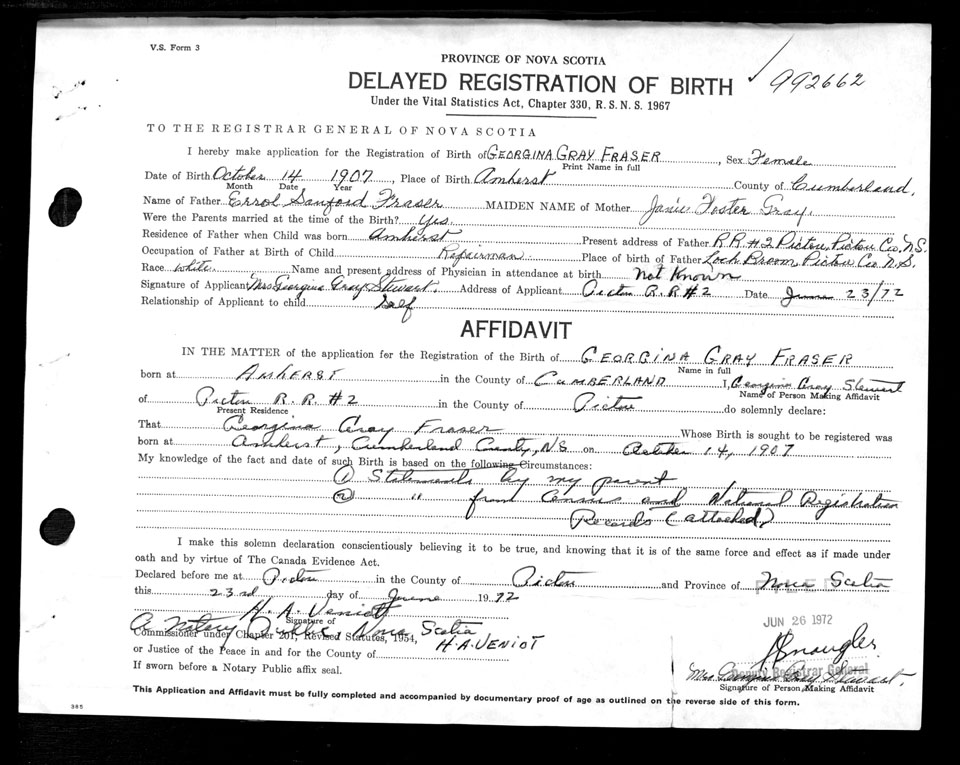 V.S. Form 3
PROVINCE OF NOVA SCOTIA
DELAYED REGISTRATION OF BIRTH
992662
Under the Vital Statistics Act, Chapter 330, R.S.N.S. 1967
TO THE REGISTRAR GENERAL OF NOVA SCOTIA
I hereby make application for the Registration of Birth of GEORGINA GRAY FRASER, Sex Female
Print Name in full
Date of Birth October 14 1907, Place of Birth Amherst County of Cumberland,
Month Date Year
Name of Father Errol Sanford Fraser MAIDEN NAME of Mother Janie Foster Gray.
Were the Parents married at the time of the Birth? Yes.
Residence of Father when Child was born Amherst Present address of Father R.R.#2 Pictou, Pictou Co. N.S.
Occupation of Father at Birth of Child Repairman Place of birth of Father Loch Broom, Pictou Co. N.S.
Race White. Name and present address of Physician in attendance at birth Not Known
Signature of Applicant Mrs Georgina Gray Stewart. Address of Applicant Pictou R.R#2 Date June 23/72
Relationship of Applicant to child Self
AFFIDAVIT
IN THE MATTER of the application for the Registration of the Birth of GEORGINA GRAY FRASER
Name in full
born at AMHERST in the County of CUMBERLAND I, Georgina Gray Stewart
Name of Person Making Affidavit
of Pictou R.R.#2 in the County of Pictou do solemnly declare:
Present Residence
That Georgina Gray Fraser Whose Birth is sought to be registered was
born at Amherst, Cumberland County, NS on October 14, 1907
My knowledge of the fact and date of such Birth is based on the following Circumstances:
(1) Statements by my parent
(2) " from Census and National Registration
Records (attached)
I make this solemn declaration conscientiously believing it to be true, and knowing that it is of the same force and effect as if made under
oath and by virtue of The Canada Evidence Act.
Declared before me at Pictou in the County of Pictou and Province of Nova Scotia
this 23rd day of June 1972
H. A. Veniot
Signature of
A Notary Public, Nova Scotia
Commissioner under Chapter 201, Revised Statutes, 1954,
H.A. VENIOT
or Justice of the Peace in and for the County of
If sworn before a Notary Public affix seal.
FILED
JUN 26 1972
Deputy Registrar General
Mrs Georgina Gray Stewart.
Signature of Person Making Affidavit
This Application and Affidavit must be fully completed and accompanied by documentary proof of age as outlined on the reverse side of this form.
385